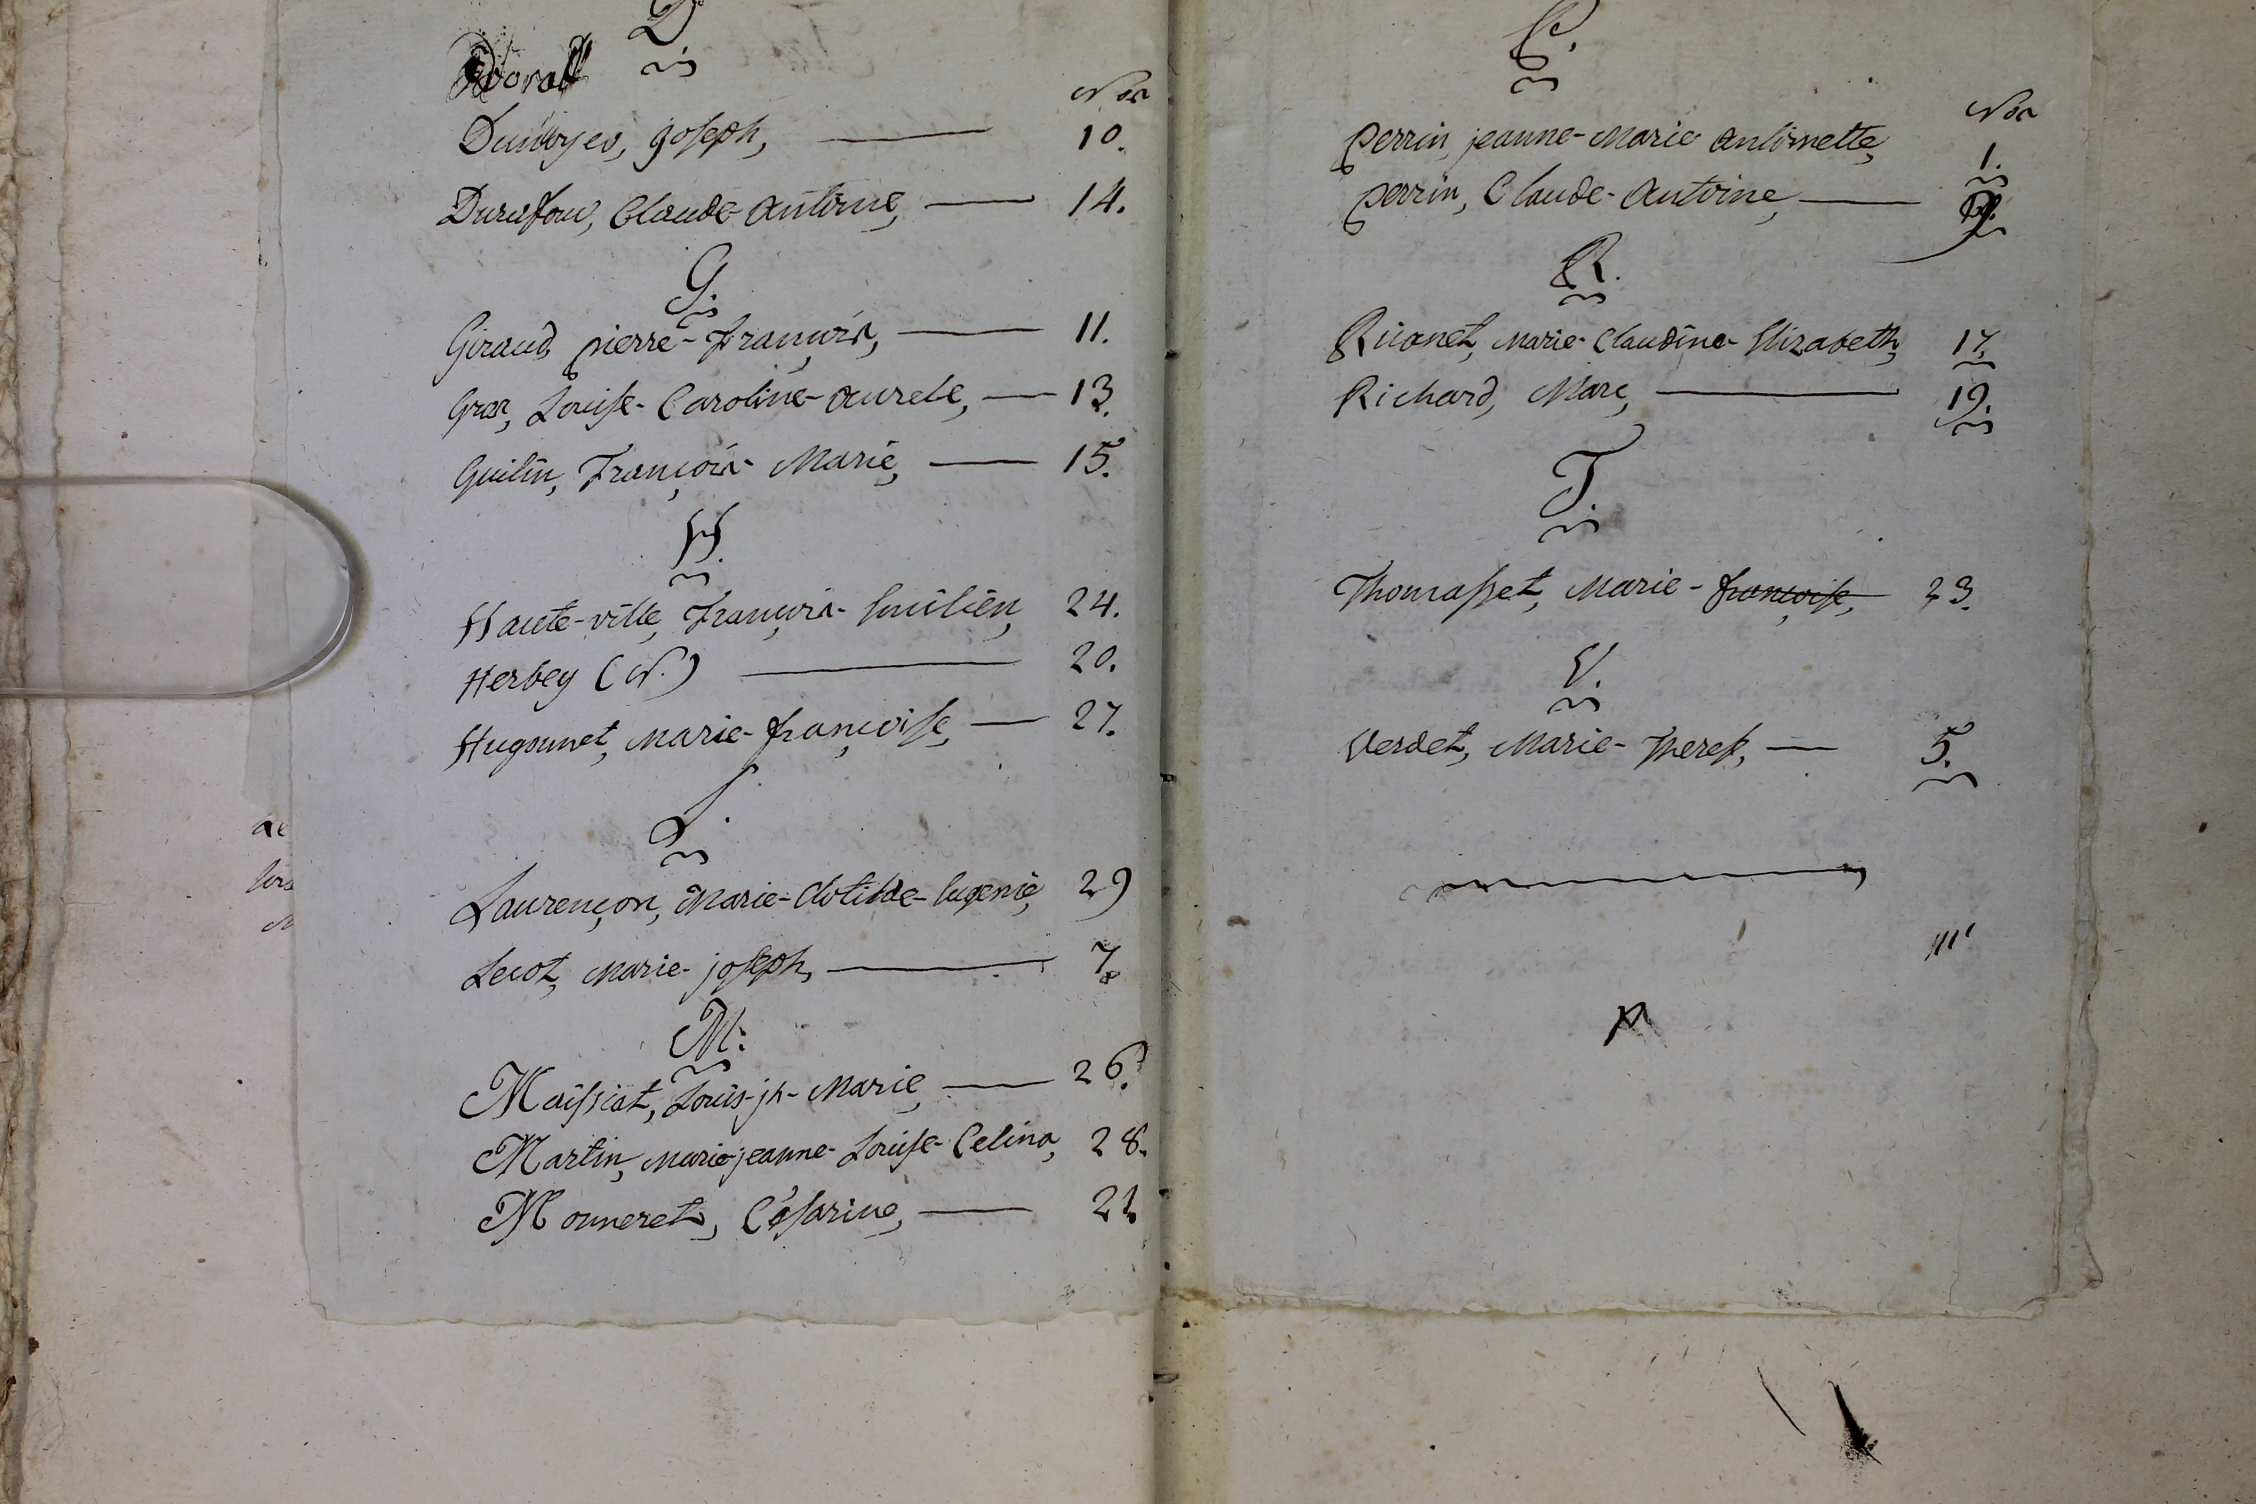 D.
Nos
Joseph, 10.
Claude-Antoine, 14.
G.
Giraud, pierre-François, 11.
Gros, Louise-Caroline-Aurele, 13.
Guilin, François-Marie, 15.
H.
Haute-ville, François-Emilien, 24.
Herbey (N.) 20.
Hugonnet, Marie-françoise, 27.
L.
Laurençon, Marie-Clotilde-Eugenie, 29
Lecot, Marie-joseph, 7.
M.
Maissiat, Louis-jh-Marie, 26.
Martin, Marie-jeanne-Louise-Celina, 28.
Monneret, Césarine, 22
P.
Nos
perrin, jeanne-Marie Antoinette, 1.
perrin, Claude-Antoine, 9.
R.
Ricanet, Marie-Claudine-Elizabeth, 17.
Richard, Marc, 19.
T.
Thomasset, Marie-françoise, 23.
V.
Verdet, Marie-Therese, 5.